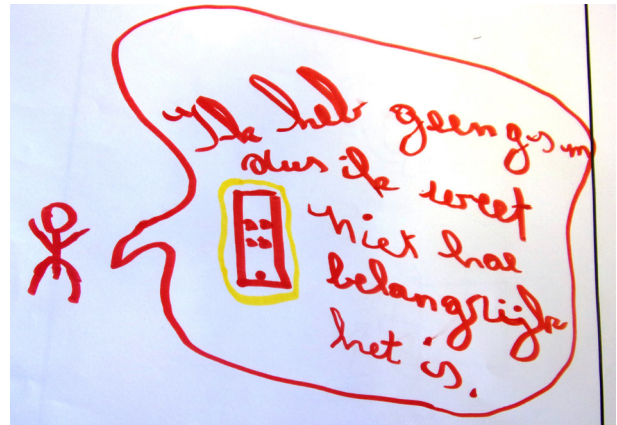 Ik heb geen gsm
dus ik weet
niet hoe
belangrijk
het is.